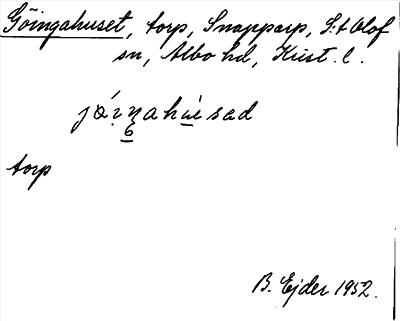 Göingahuset, torp, Snapparp, S:t Olof
sn, Albo hd, Krist. l.
torp
B. Ejder 1952.